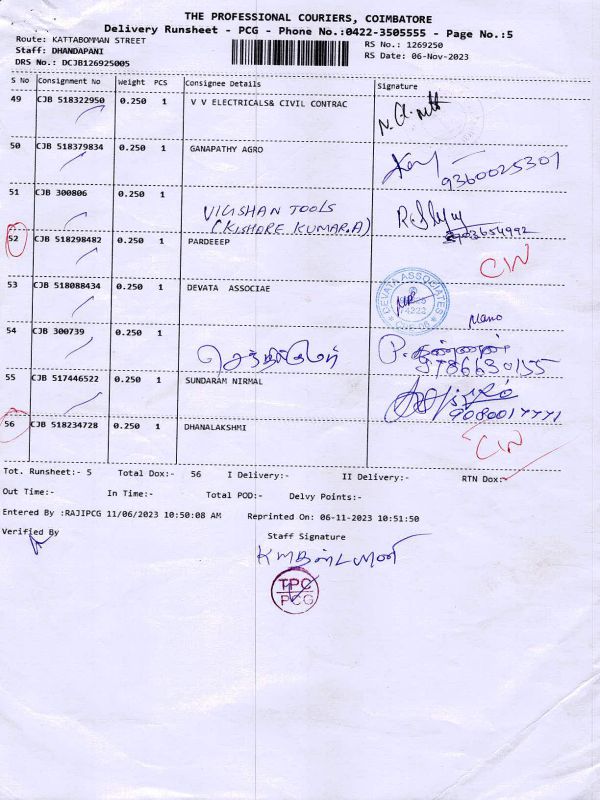 THE PROFESSIONAL COURIERS, COIMBATORE
Delivery Runsheet - PCG - Phone No.:0422-3505555 - Page No.:5
Route: KATTABOMMAN STREET
RS No.: 1269250
Staff: DHANDAPANI
RS Date: 06-Nov-2023
DRS No.: DCJB126925005
S No Consignment No Weight PCS Consignee Details Signature
49 CJB 518322950 0.250 1 V V ELECTRICALS& CIVIL CONTRAC
50 CJB 518379834 0.250 1 GANAPATHY AGRO
9360025301
51 CJB 300806 0.250 1
VIGISHAN TOOLS
(KISHORE KUMAR.A)
52 CJB 518298482 0.250 1 PARDEEEP
CW
53 CJB 518088434 0.250 1 DEVATA ASSOCIAE
DEVATA ASSOCIATES
Mano
54 CJB 300739 0.250 1
9786630155
55 CJB 517446522 0.250 1 SUNDARAM NIRMAL
56 CJB 518234728 0.250 1 DHANALAKSHMI
CW
Tot. Runsheet:- 5 Total Dox:- 56 I Delivery:- II Delivery:- RTN Dox:-
Out Time:- In Time:- Total POD:- Delvy Points:-
Entered By :RAJIPCG 11/06/2023 10:50:08 AM Reprinted On: 06-11-2023 10:51:50
Verified By Staff Signature
TPC
PCG